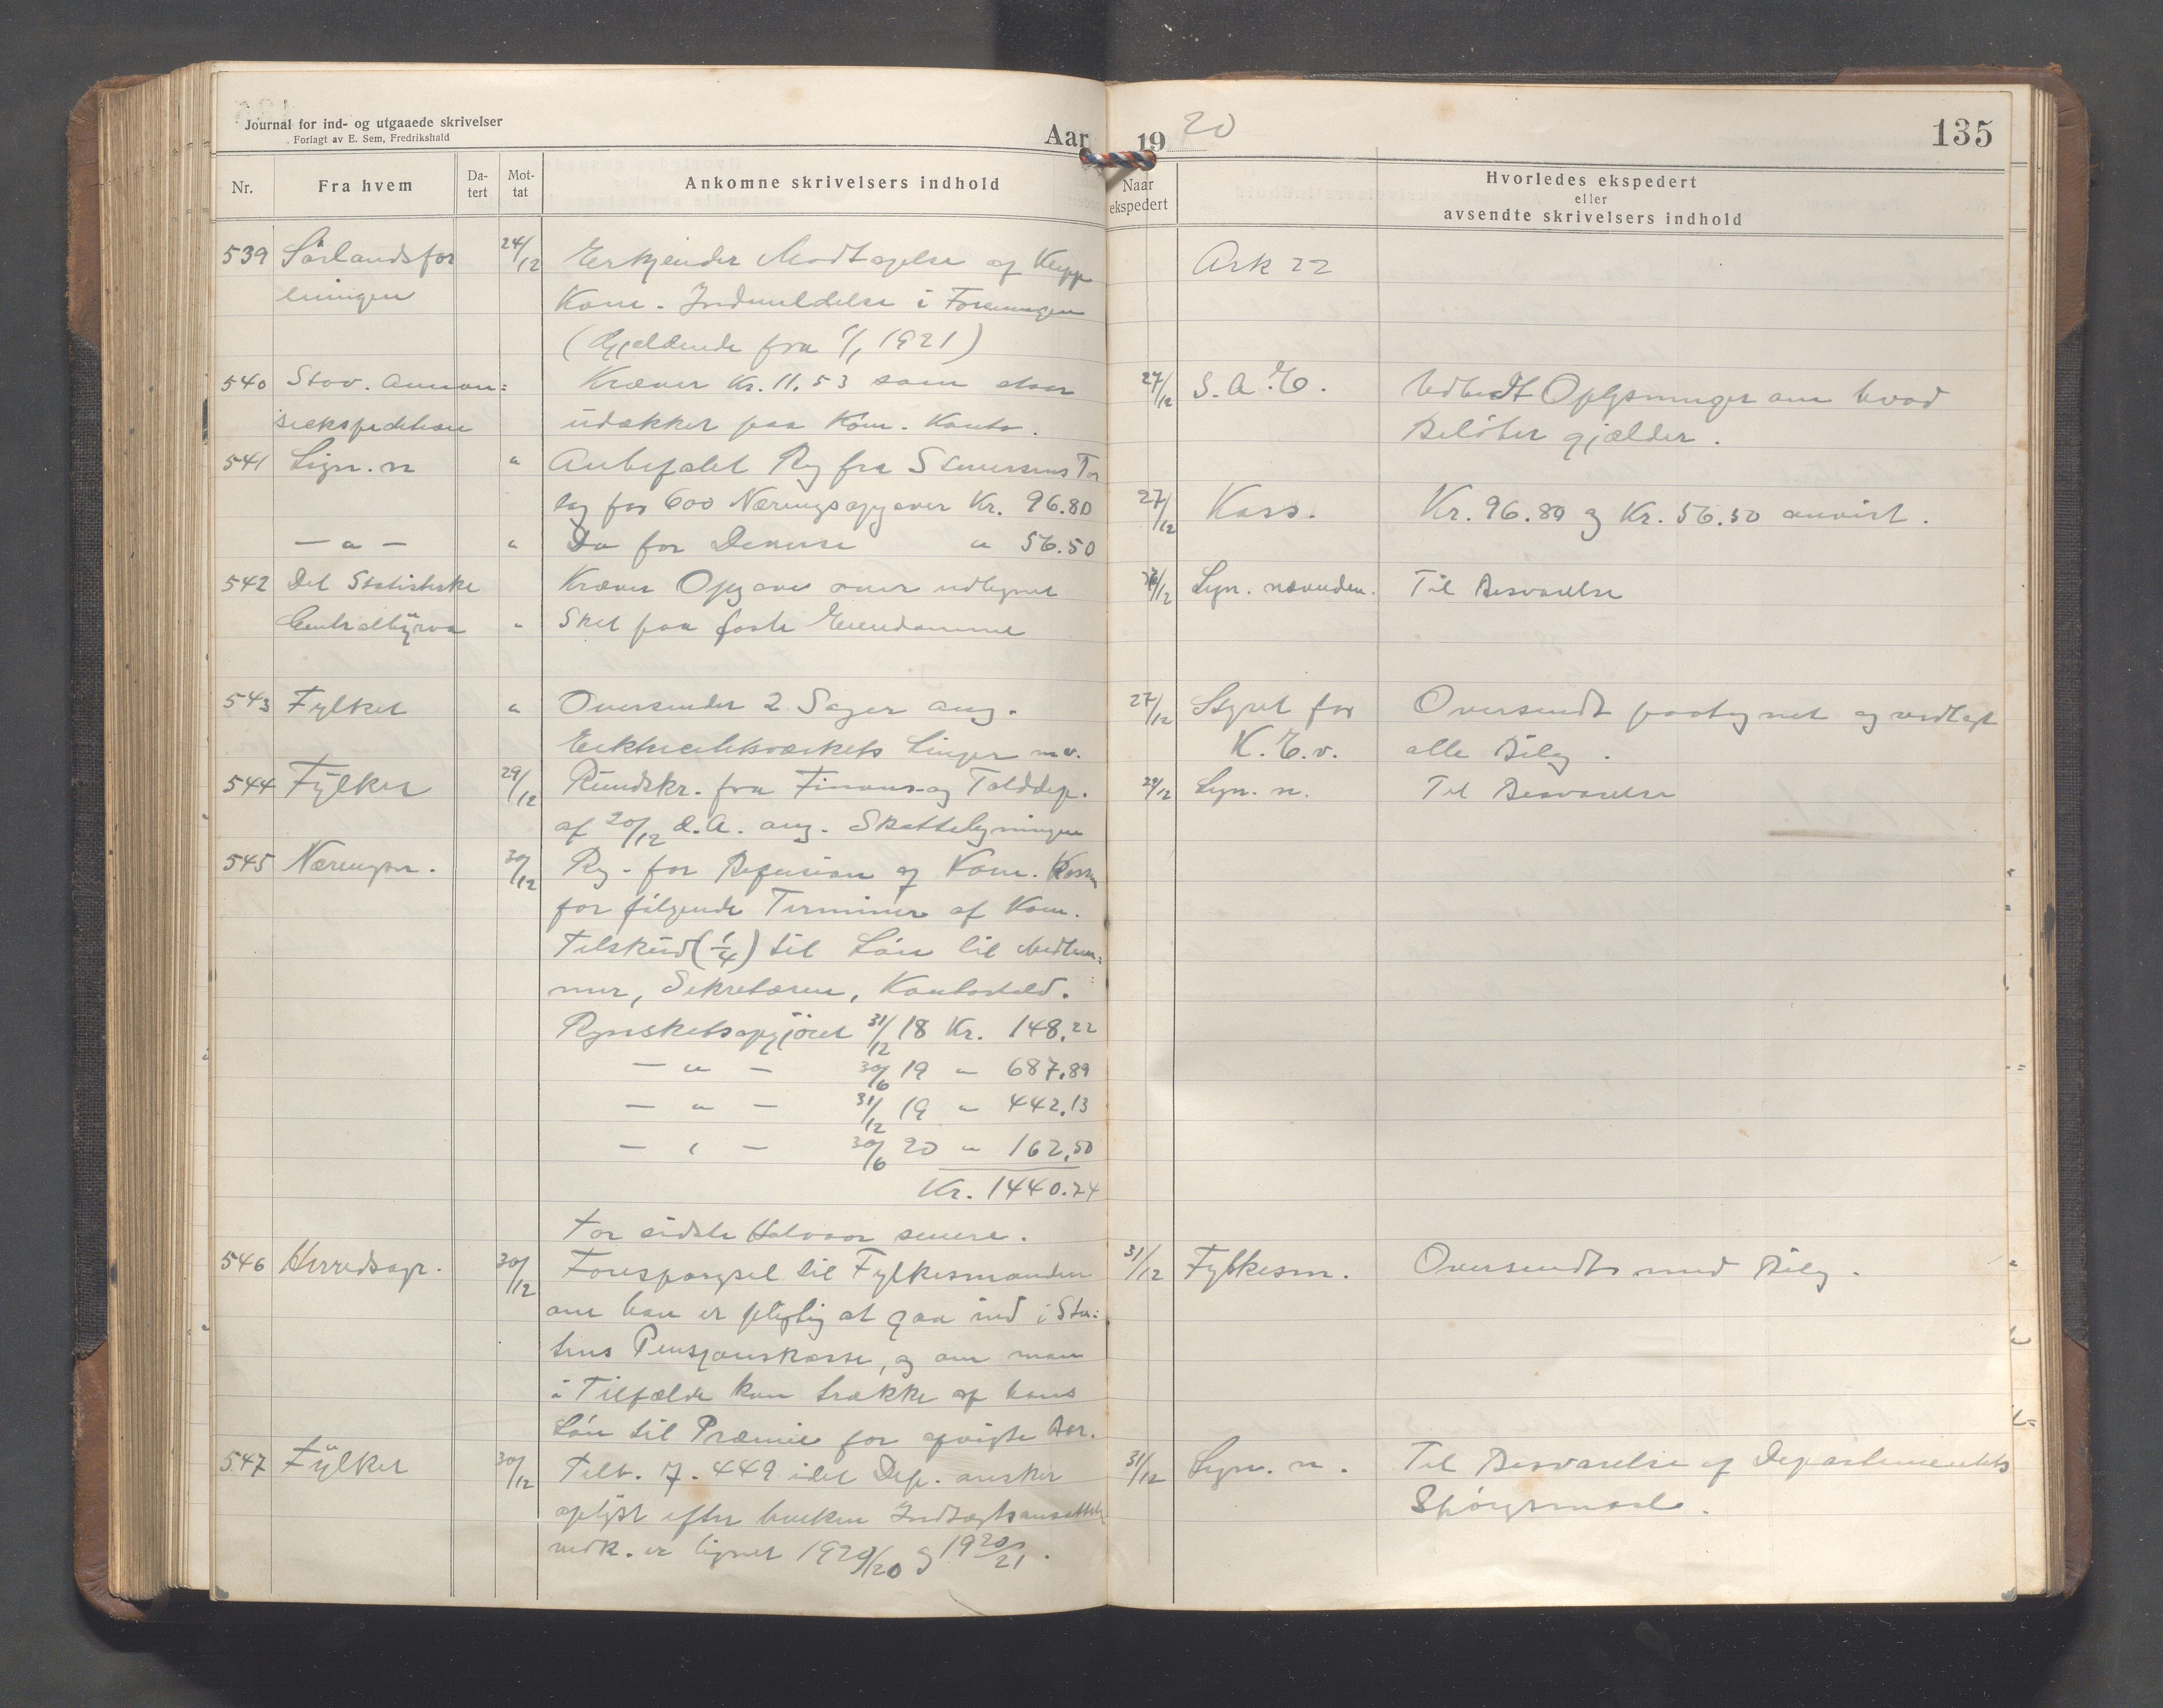 Journal for ind- og utgaaede skrivelser
Forlagt av E. Sem, Fredrikshald
Aar 1920
135
Nr. Fra hvem Da-tert Mot-tat Ankomne skrivelsers indhold Naar ekspedert Hvorledes ekspedert eller avsendte skrivelsers indhold
539 Sørlandsfor 24/12 Erkjender Modtagelse af Klepp Ark 22
Kom. Indmeldelse i Foreningen
(Gjeldende fra 1/1 1921)
540 Stav. Annon= Kræver Kr. 11.53 som staar 27/12 S. A. E. Udbedt Oplysninger om hvad
seekspedition udækket paa Kom. Konto. Beløbet gjælder.
541 Lign. n " Anbefalet Rg fra
for 600 Næringsopgaver Kr. 96.80 27/12 Kass. Kr. 96.80 og Kr. 56.50 anvist.
— " — " Do for " 56.50
542 Det Statistiske Kræver Opgave over udlignet 27/12 Lign. nævnden. Til Besvarelse
Centralbyraa " Skat paa faste Eiendomme
543 Fylket " Oversender 2 Sager ang. 27/12 Styret for Oversendt paategnet og vedlagt
Elektricitetsværkets Linjer m.v. K. E. v. alle Bilag.
544 Fylket 29/12 Rundskr. fra Finans- og Tolddep. 29/12 Lign. n. Til Besvarelse
af 20/12 d.A. ang. Skatteligningen
545 Næringsr. 30/12 Rg. for Refusion af Kom. Kassen
for følgende Terminer af Kom.
Tilskud (1/4) til Løn til Medlem=
mer, Sekretæren, Kontorhold.
Regnskabsopgjøret 31/12 18 Kr. 148.22
— " — 30/6 19 " 687.89
— " — 31/12 19 " 442.13
— " — 30/6 20 " 162.50
Kr. 1440.74
For sidste Halvaar senere.
546 Herredsagr. 30/12 Forespørgsel til Fylkesmanden 31/12 Fylkesm. Oversendt med Bilag.
om han er pligtig at gaa ind i Sta=
tens Pensjonskasse, og om man
i Tilfælde kan trække af hans
Løn til Præmie for afvigte Aar.
547 Fylket 30/12 Tilb. J. 449 idet Dep. ønsker 31/12 Lign. n. Til Besvarelse af Departementets
oplyst efter hvilken Indtægtsansættelse Spørgsmaal.
vedk. er lignet 1919/20 og 1920/21.